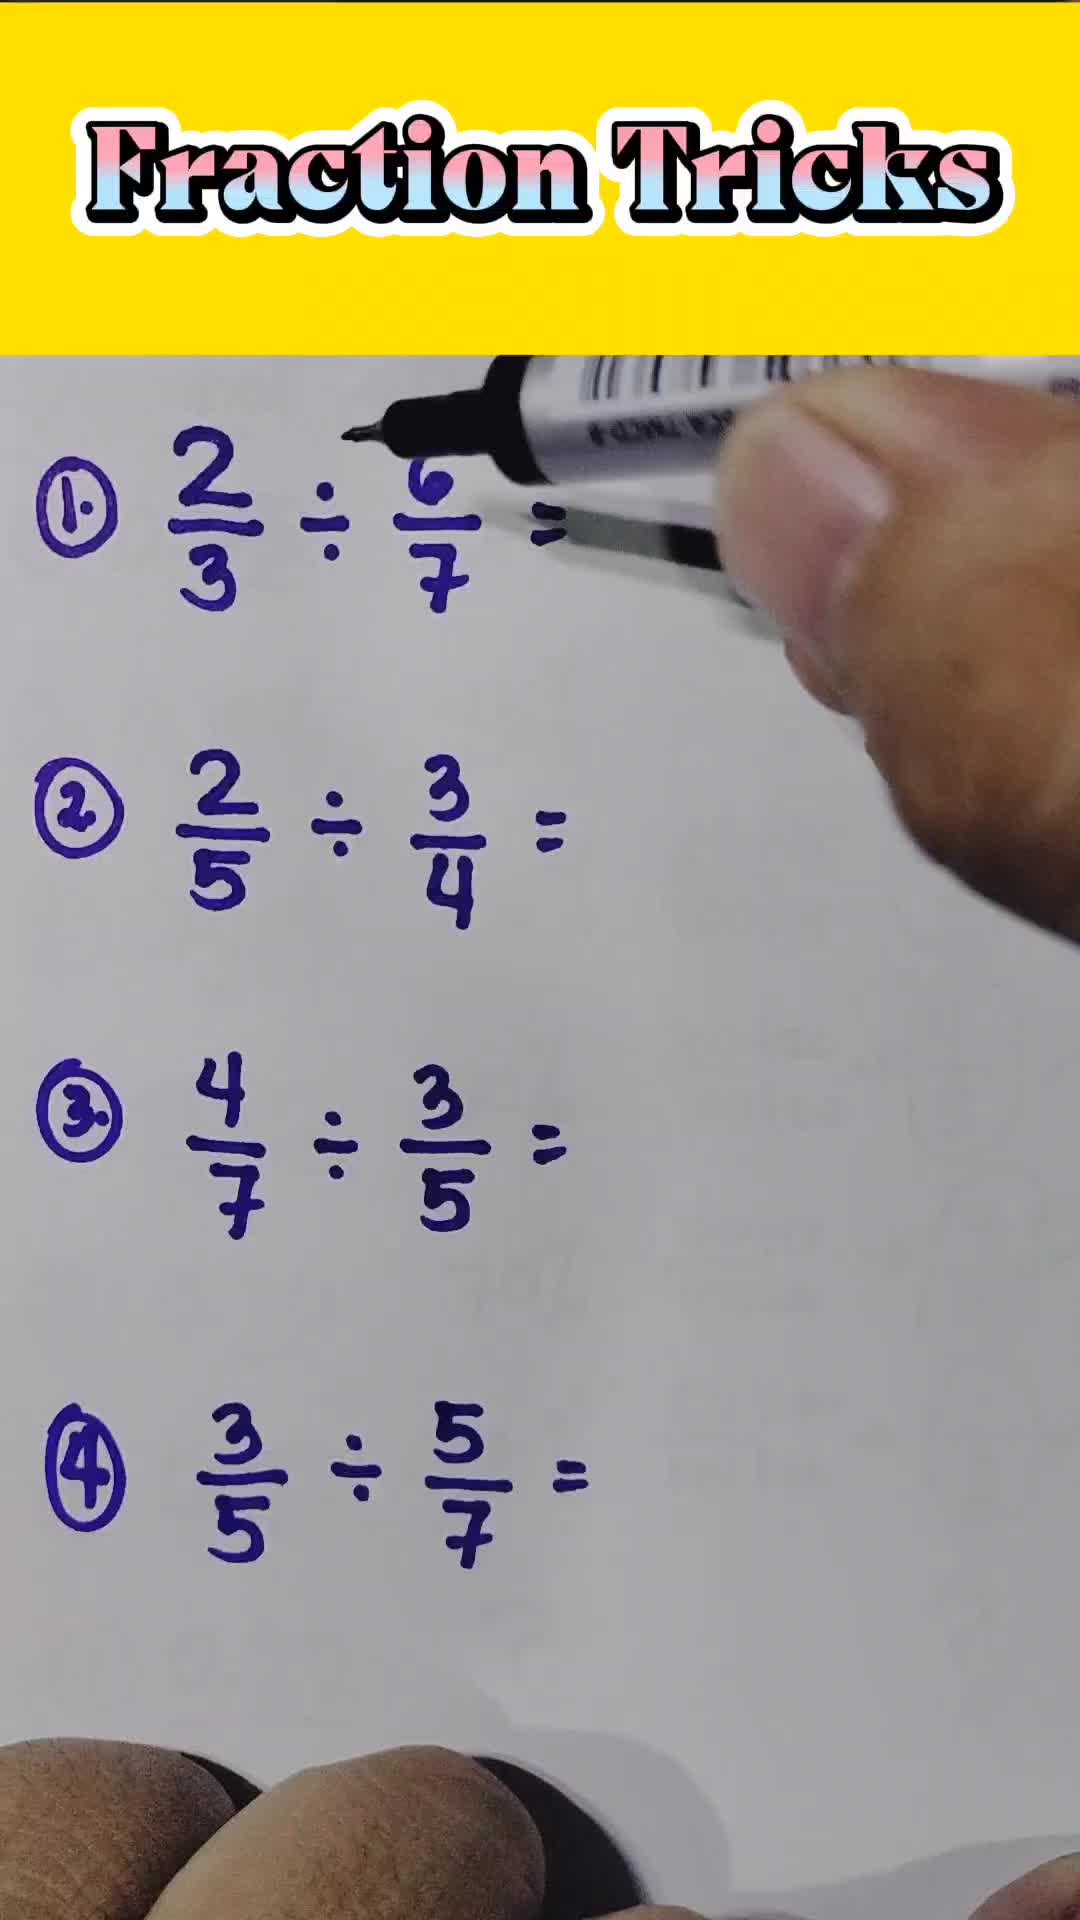 Fraction Tricks
1. 2/3 ÷ 6/7 =
2. 2/5 ÷ 3/4 =
3. 4/7 ÷ 3/5 =
4 3/5 ÷ 5/7 =